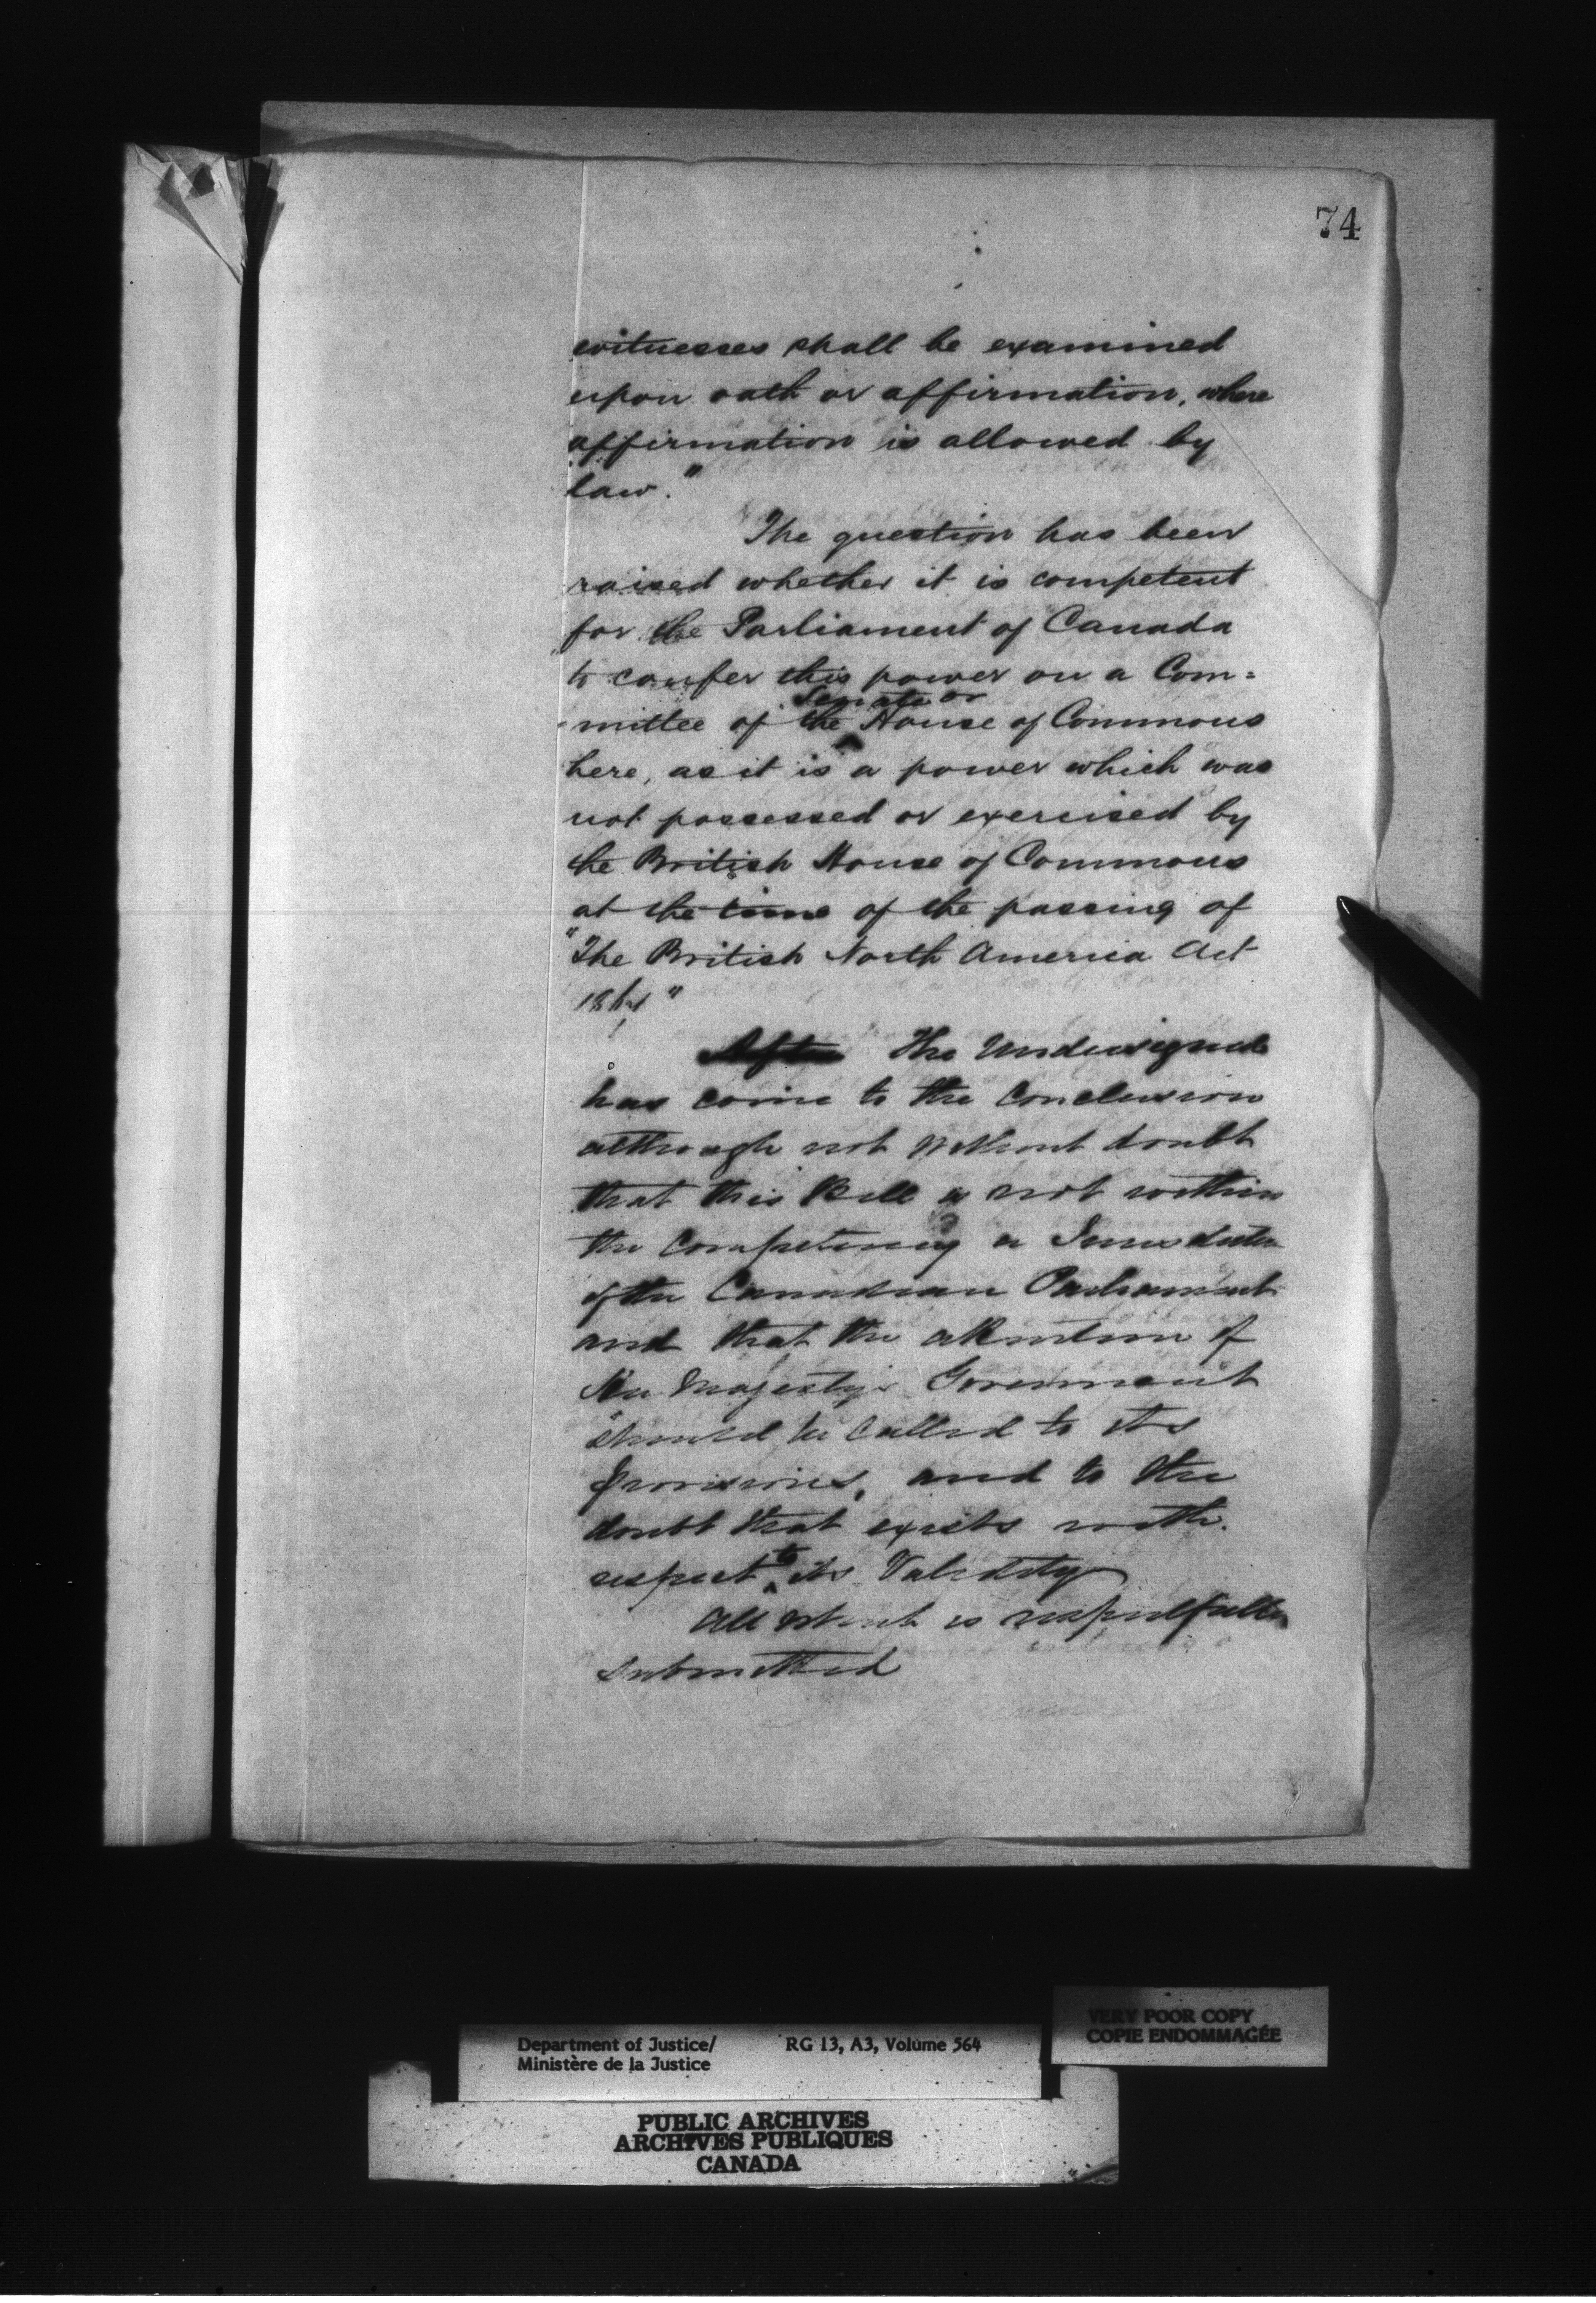 74
witnesses shall be examined
upon oath or affirmation, where
affirmation is allowed by
law."
The question has been
raised whether it is competent
for the Parliament of Canada
to confer this power on a Com=
Senate or
mittee of the House of Commons
here, as it is a power which was
not possessed or exercised by
the British House of Commons
at the time of the passing of
"The British North America Act
1867"
After The Undersigned
has come to the Conclusion
although not without doubt
that this Bill is not within
the Competency or Jurisdiction
of the Canadian Parliament
and that the attention of
Her Majesty's Government
should be called to its
provisions, and to the
doubt that exists with
respect to its Validity
All which is respectfully
submitted
VERY POOR COPY
COPIE ENDOMMAGÉE
Department of Justice/ RG 13, A3, Volume 564
Ministère de la Justice
PUBLIC ARCHIVES
ARCHIVES PUBLIQUES
CANADA